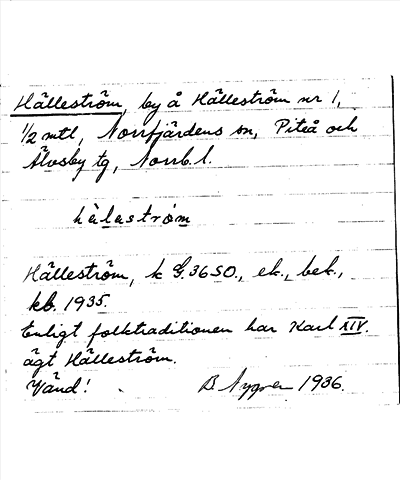 Hälleström, by å Hälleström nr 1,
1/2 mtl, Norrfjärdens sn, Piteå och
Älvsby tg, Norrb. l.
hälaström
Hälleström, k g. 36 SO., ek., bek.,
kb. 1935.
Enligt folktraditionen har Karl XIV.
ägt Hälleström.
Vänd! B. Nygren 1936.